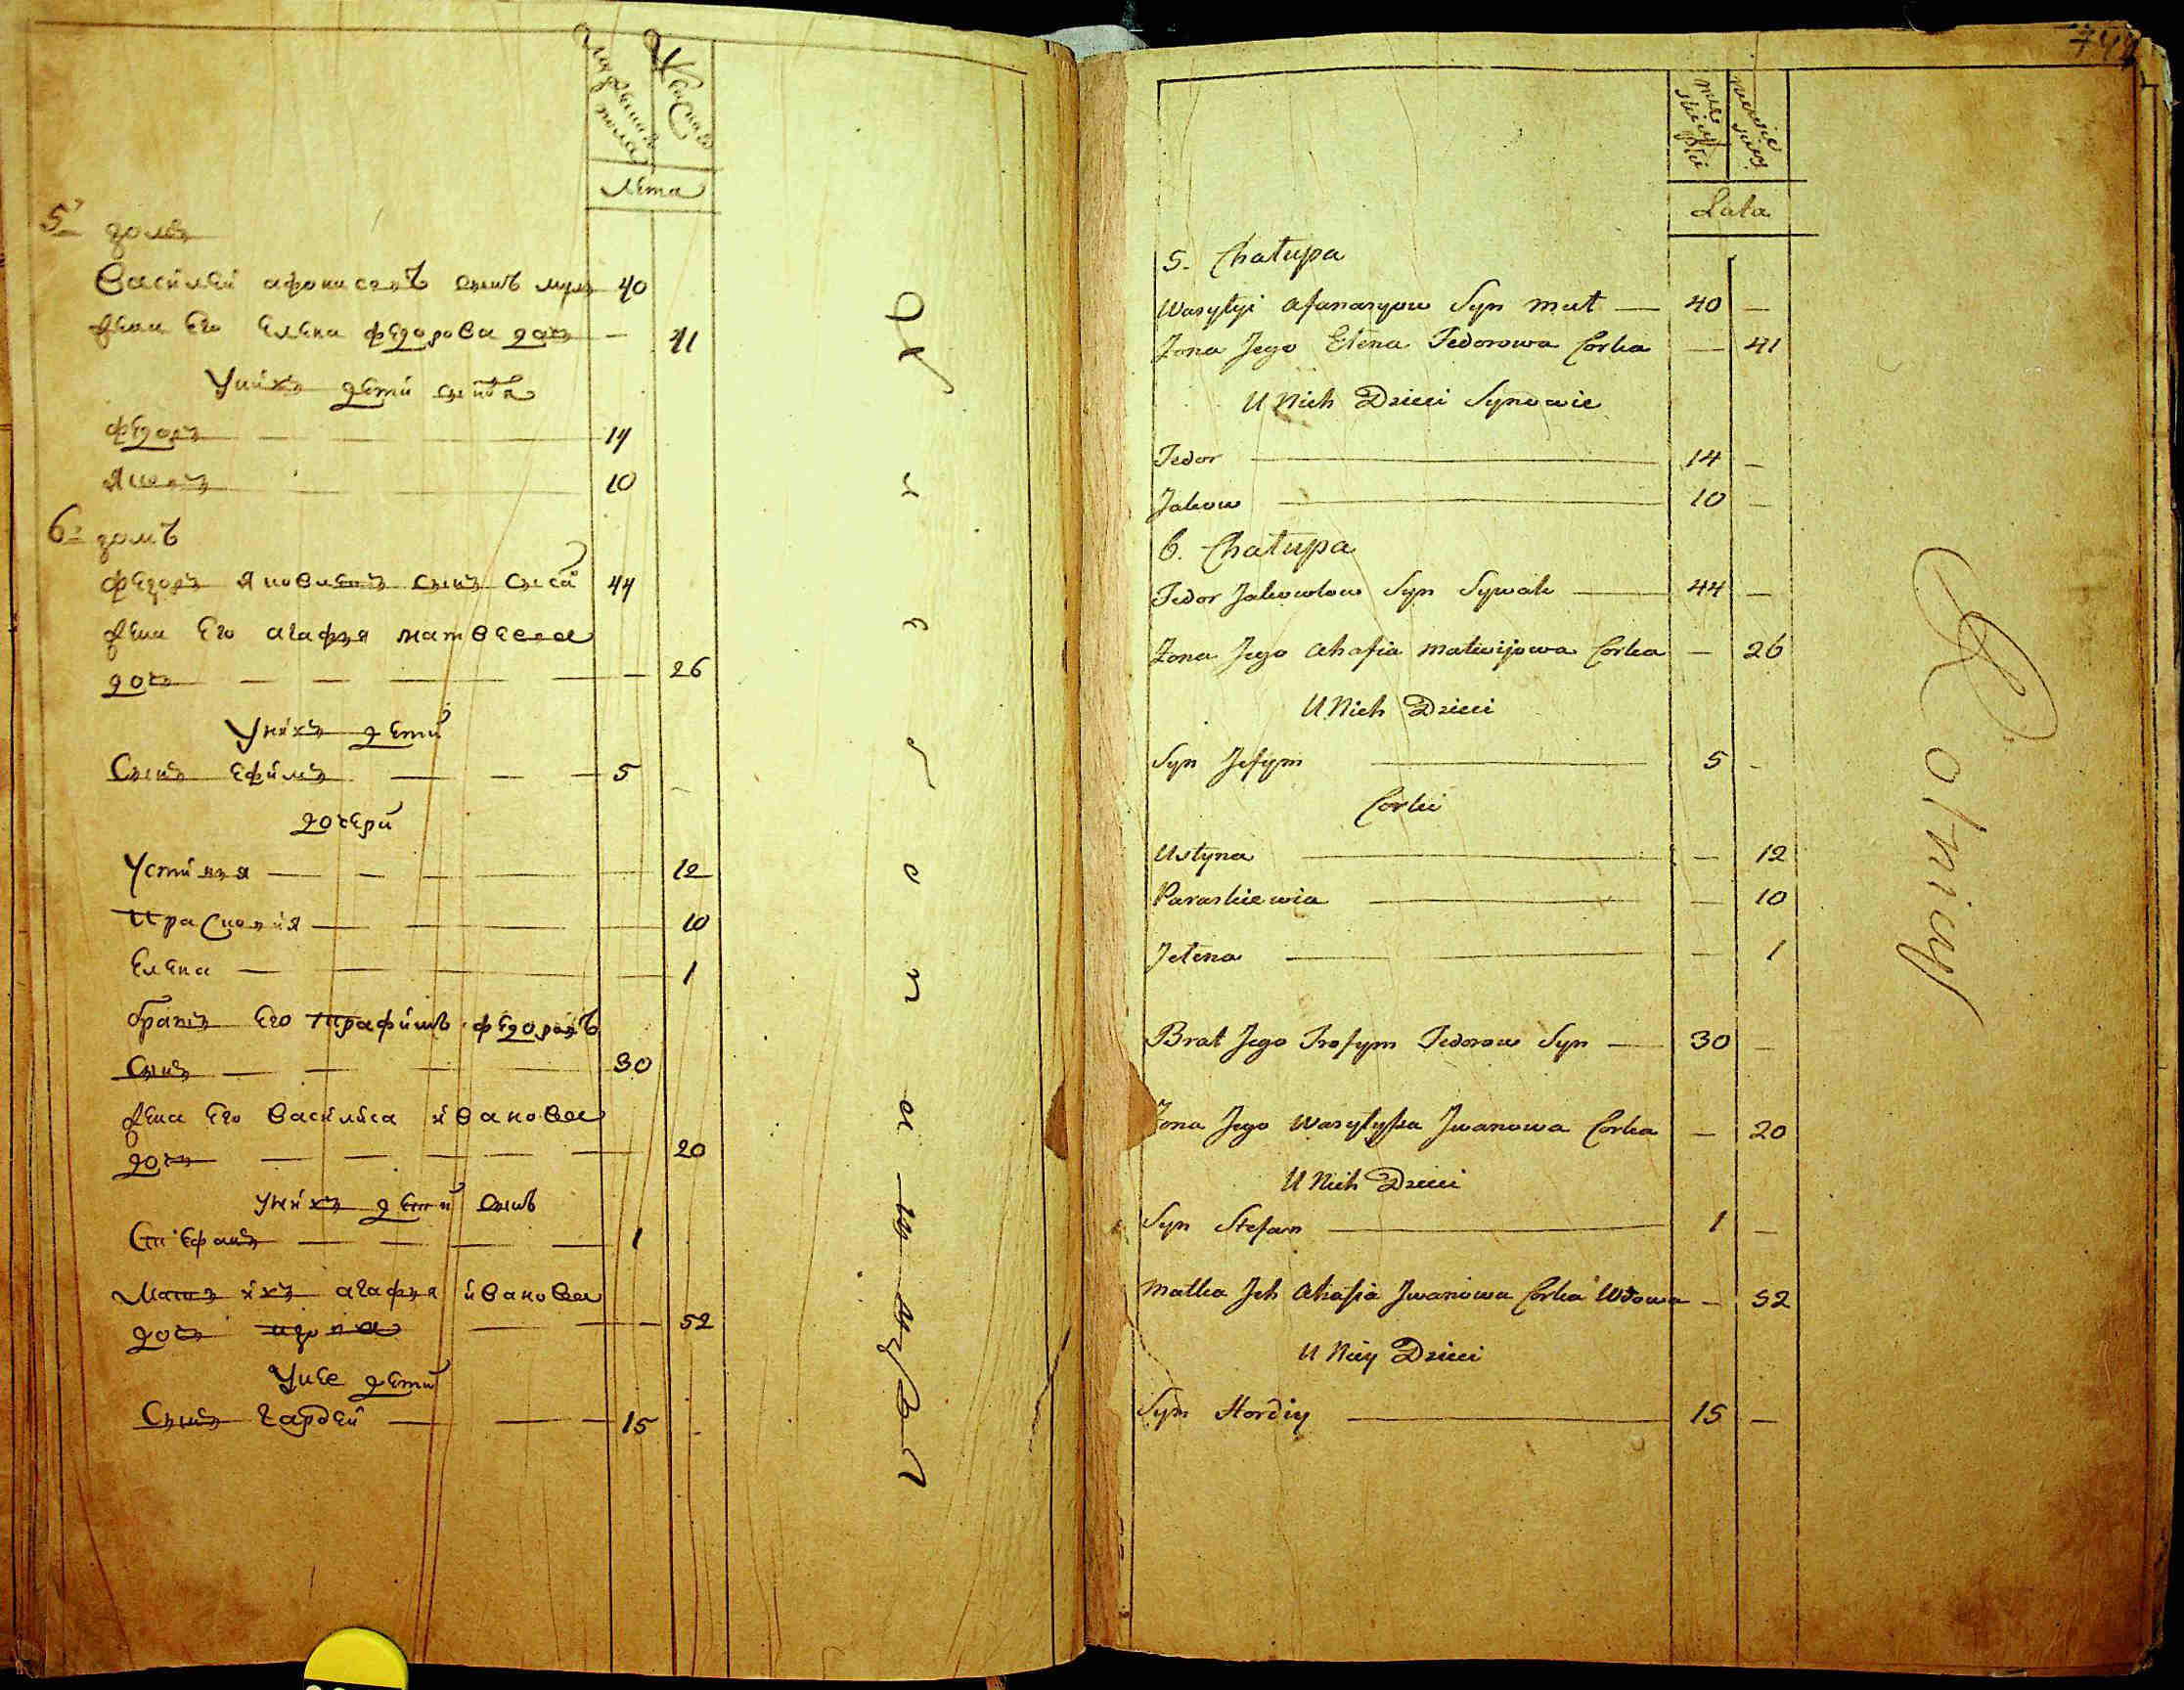 Мужеска пола
Женска
Лѣта
5й домъ
Василей афонасевъ сынъ мул 40
Жена Его Елена федорова дочь — 41
У нихъ дети сыновя
федоръ — 14
Яковъ — 10
6й домъ
федоръ Яковлевъ сынъ 44
Жена Его агафья матвеева
дочь — 26
У нихъ дети
Сынъ ефимъ — 5
дочери
Устинья — 12
Прасковия — 10
Елена — 1
братъ Его трафимъ федоровъ
Сынъ — 30
Жена Его Василиса иванова
дочь — 20
У нихъ детей сынъ
Стефанъ — 1
Мать ихъ агафья иванова
дочь вдова — 52
У нее дети
Сынъ гардей — 15
744
męskiey płci
żenskiey
Lata
5. Chałupa
Wasylyi Afanasyow Syn Muł — 40 —
Żona Jego Elena Fedorowa Corka — 41
U Nich Dzieci Synowie
Fedor — 14 —
Jakow — 10 —
6. Chałupa
Fedor Jakowlow Syn Sywak — 44 —
Żona Jego Ahafia Matwijowa Corka — 26
U Nich Dzieci
Syn Jefym — 5 -
Corki
Ustyna — — 12
Paraskiewia — — 10
Jelena — — 1
Brat Jego Trofym Fedorow Syn — 30 —
Żona Jego Wasylyssa Jwanowa Corka — 20
U Nich Dzieci
Syn Stefan — 1 —
Matka Jch Ahafia Jwanowa Corka Wdowa — 52
U Niey Dzieci
Syn Hordiy — 15 —